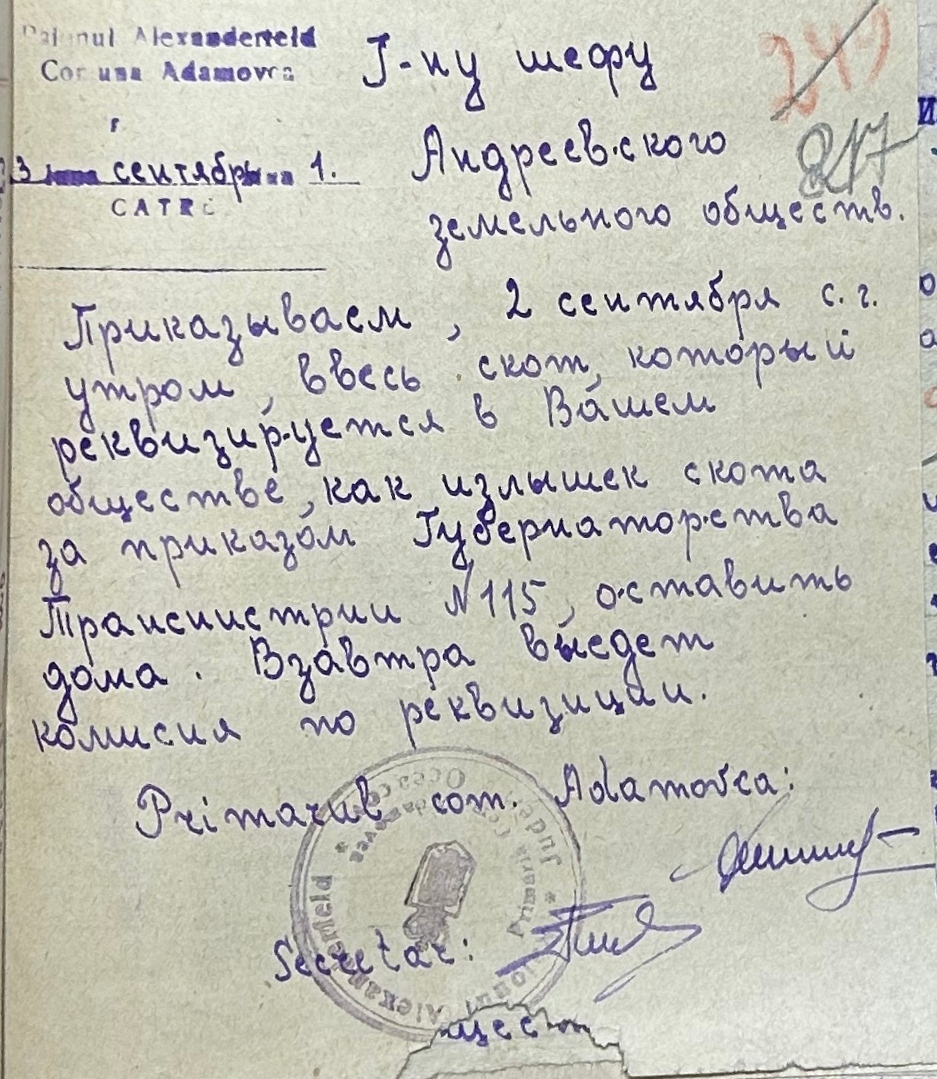 Raionul Alexanderfeld
Comuna Adamovca
Г-ну шефу
249
217
Андреевского
3 сентября 1.
CATRE
земельного обществ.
Приказываем, 2 сентября с.г.
утром, ввесь скот, который
реквизируется в Вашем
обществе, как излышек скота
за приказом Губернаторства
Транснистрии N 115, оставить
дома. Взавтра выедет
комисия по реквизиции.
Primarul com. Adamovca:
Secretar:
Raionul Alexanderfeld * Judetul Oceacov
Primaria Com. Adamovca